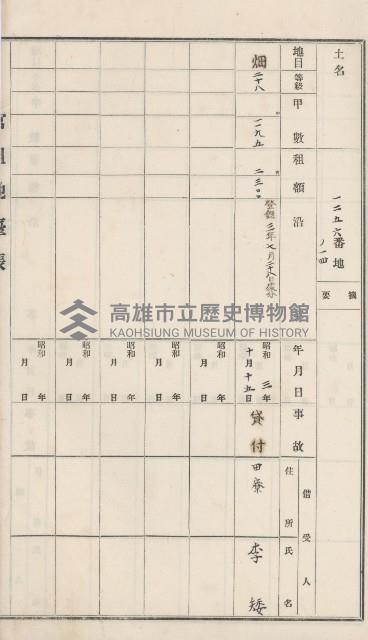 土名
一二五六番地ノ一四
摘要
地目 等級 甲數 租額 沿
畑 二十八 一九五 二三〇
登錄 三年七月二十八日
年月日 事故 借受人 住所 氏名
昭和三年十月十五日 貸付 田寮 李矮
昭和 年 月 日
昭和 年 月 日
昭和 年 月 日
昭和 年 月 日
昭和 年 月 日
官租地臺帳
高雄市立歷史博物館
KAOHSIUNG MUSEUM OF HISTORY